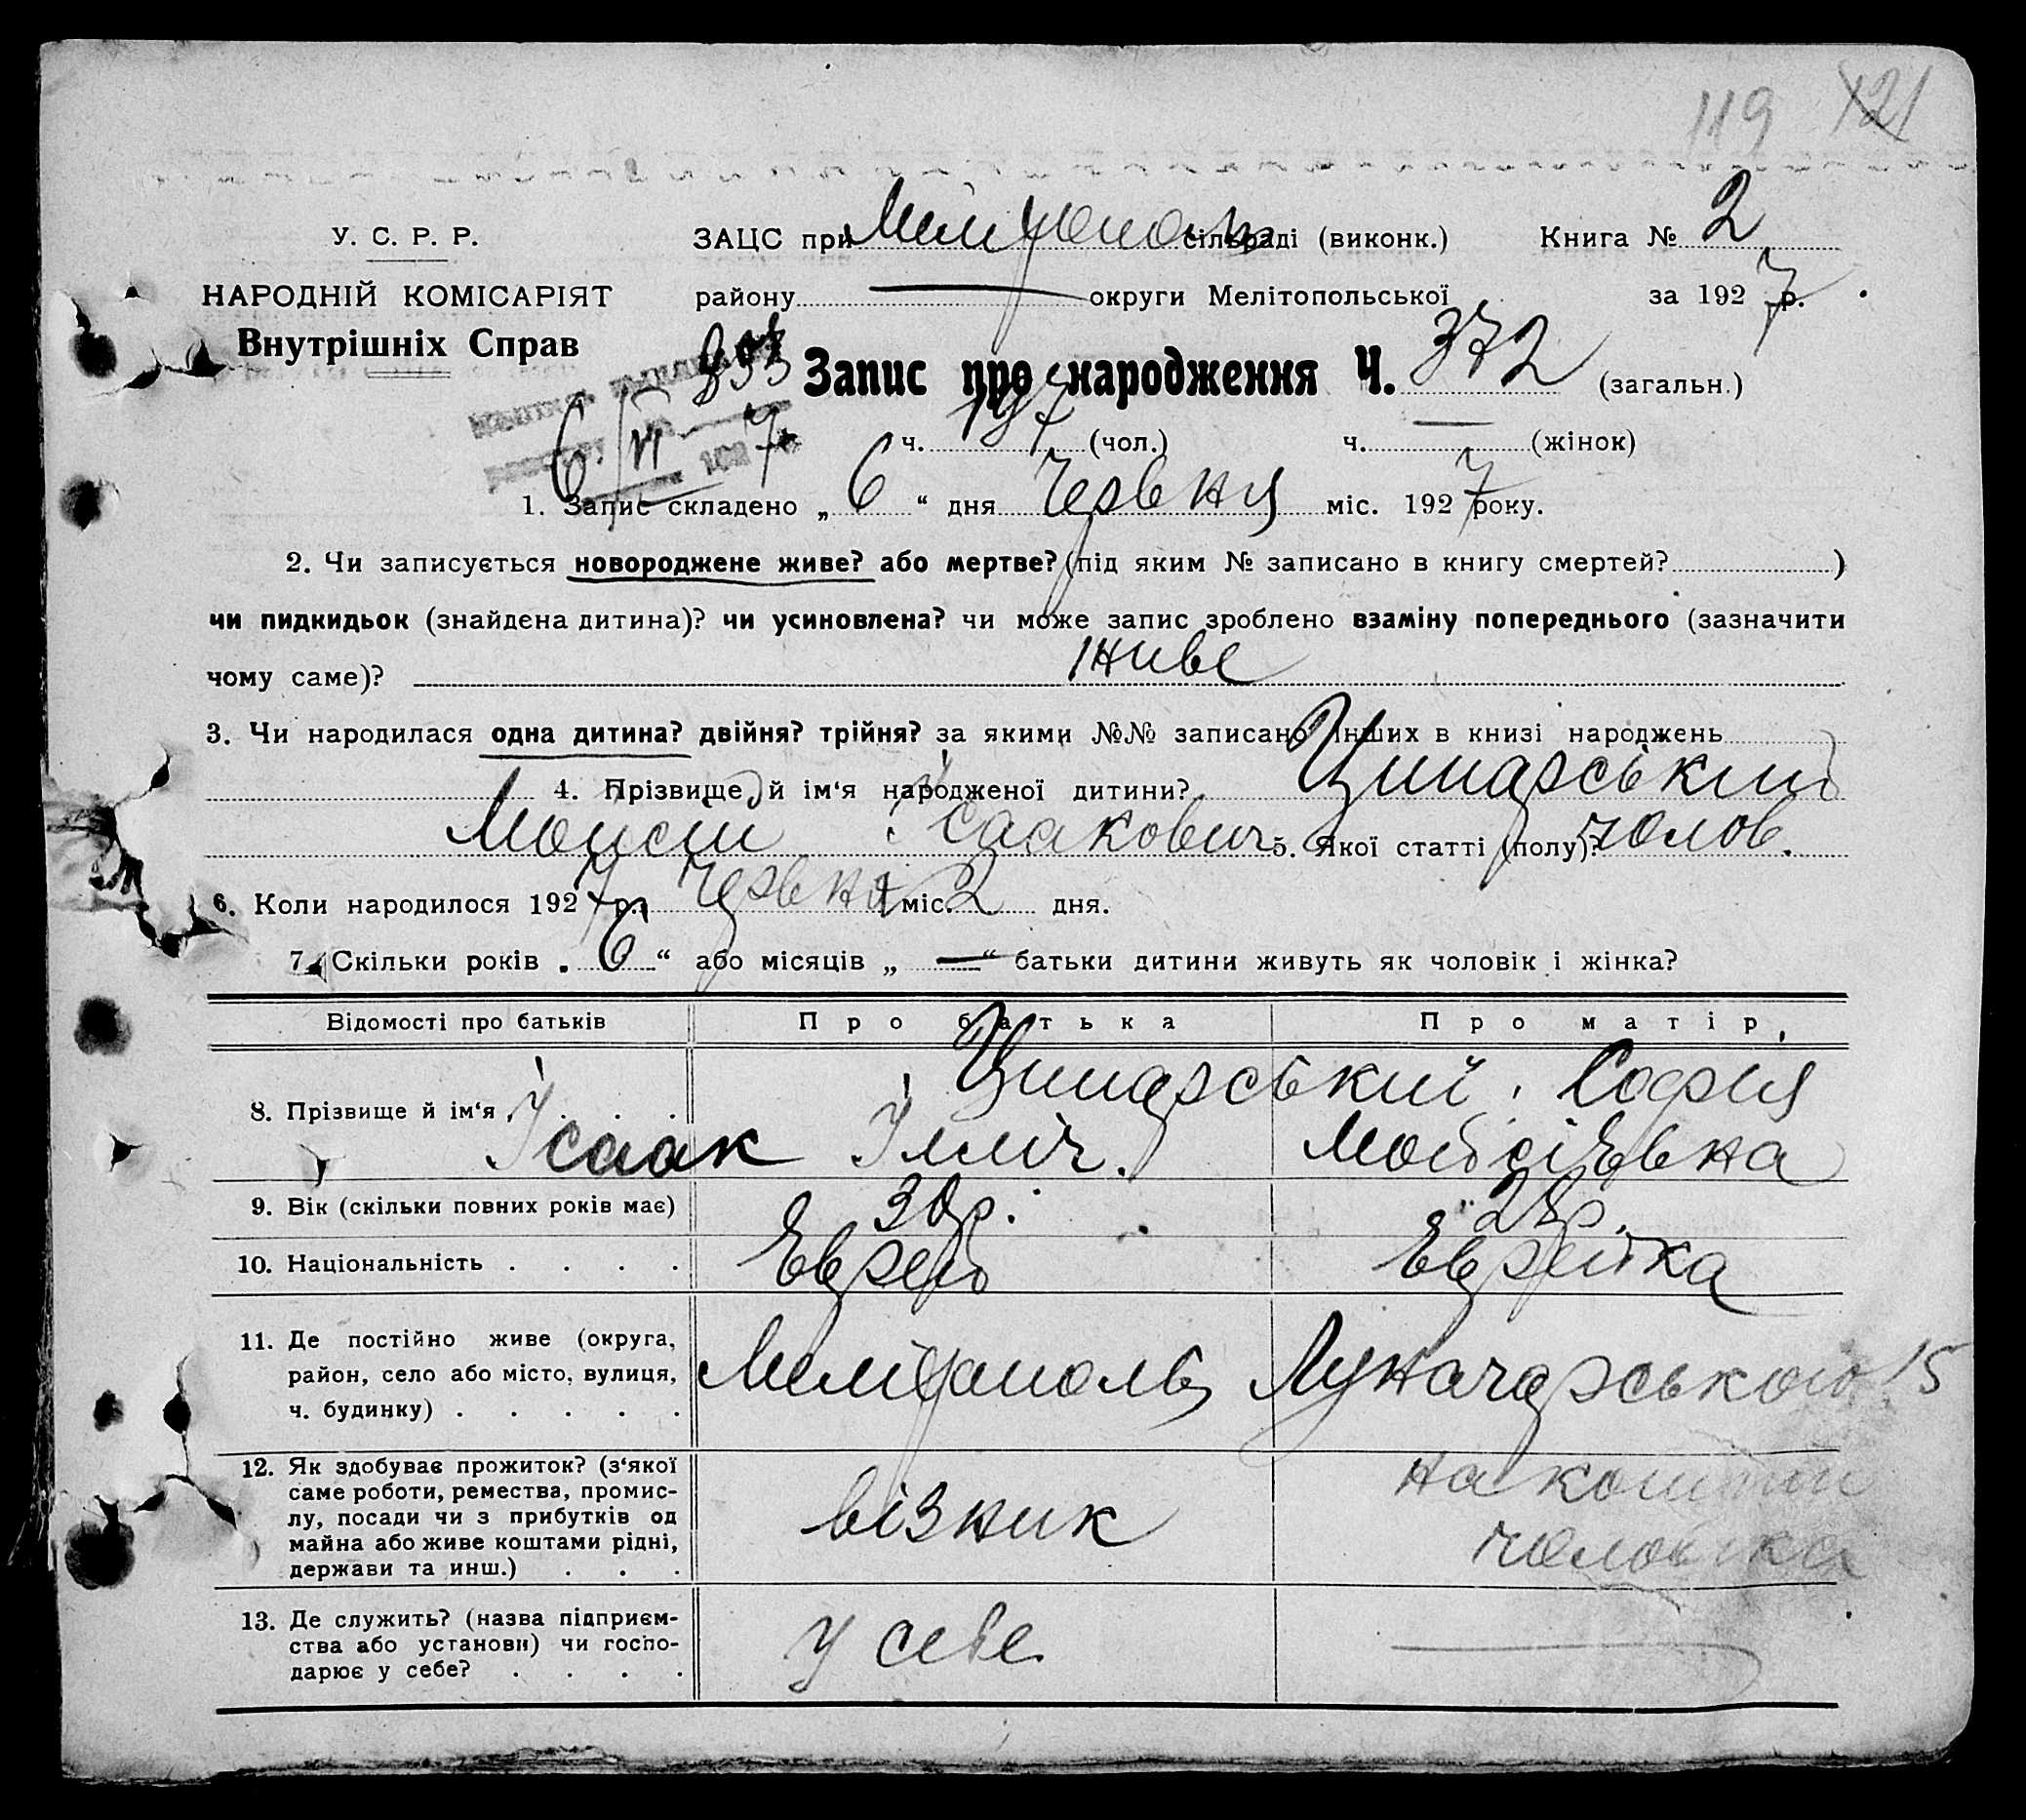 119 121
У. С. Р. Р.
ЗАЦС при Мелітополь сільраді (виконк.) Книга № 2
НАРОДНІЙ КОМІСАРІЯТ
району — округи Мелітопольської за 1927 р.
Внутрішніх Справ
Запис про народження Ч. 372 (загальн.)
6/VI 7
ч. 197 (чол.) ч. — (жінок)
1. Запис складено „ 6 “ дня Червня міс. 1927 року.
2. Чи записується новороджене живе? або мертве? (під яким № записано в книгу смертей? )
чи пидкидьок (знайдена дитина)? чи усиновлена? чи може запис зроблено взаміну попереднього (зазначити
чому саме)? живе
3. Чи народилася одна дитина? двійня? трійня? за якими №№ записано інших в книзі народжень
4. Прізвище й ім‘я народженої дитини? Ципарський
Мойсій Ісаакович 5. Якої статті (полу)? чолов.
6. Коли народилося 1927 р. Червня міс. 2 дня.
7. Скільки років „ 6 “ або місяців „ — “ батьки дитини живуть як чоловік і жінка?
Відомості про батьків Про батька Про матір
8. Прізвище й ім‘я . . . . Ципарський Софія
Ісаак Ілліч. Мойсіевна
9. Вік (скільки повних років має) 30р. 28р.
10. Національність . . . . Еврей Еврейка
11. Де постійно живе (округа,
район, село або місто, вулиця,
ч. будинку) . . . . .
Мелітополь Луначарського 15
12. Як здобуває прожиток? (з‘якої
саме роботи, ремества, промис-
лу, посади чи з прибутків од
майна або живе коштами рідні,
держави та инш.) . . .
візник
на кошти
чоловіка
13. Де служить? (назва підприєм-
ства або установи) чи госпо-
дарює у себе? . . . .
у себе —